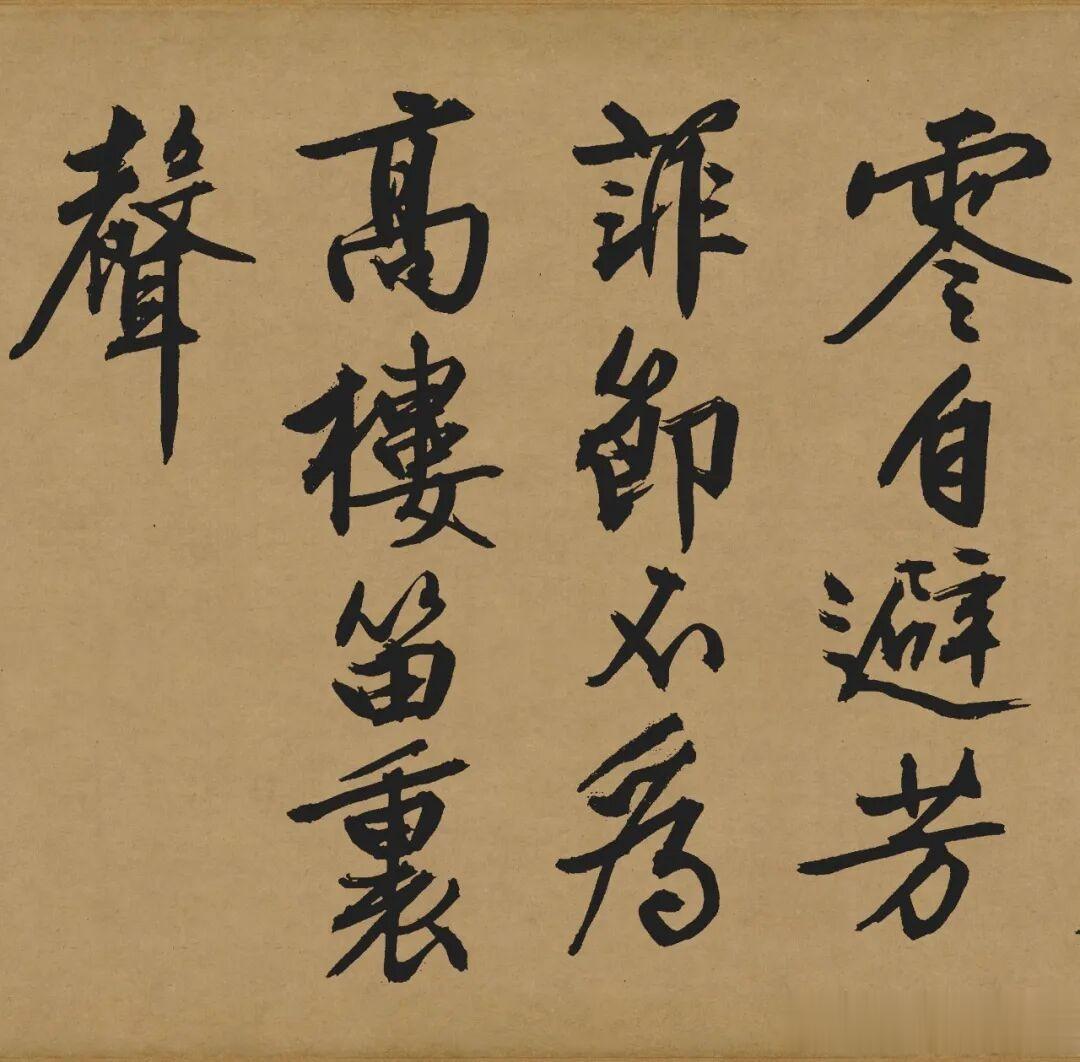 零自避芳
菲節不爲
高樓笛裏
聲